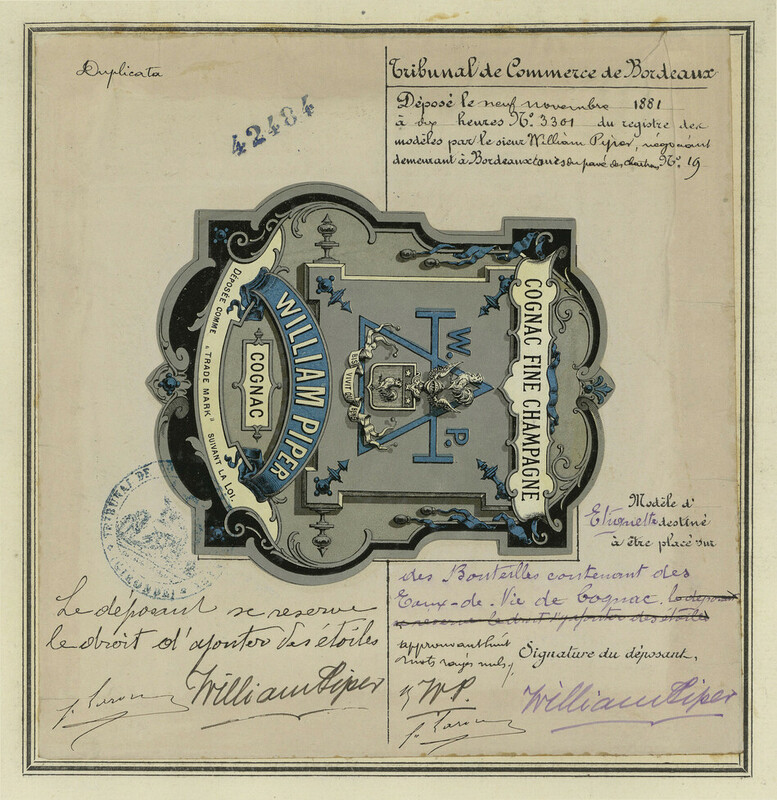 Duplicata
42484
Tribunal de Commerce de Bordeaux
Déposé le neuf novembre 1881
à dix heures N° 3301 du registre des
modèles par le sieur William Piper, négociant
demeurant à Bordeaux pavé des Chartrons N° 19
COGNAC FINE CHAMPAGNE
W. P.
WILLIAM PIPER
COGNAC
DÉPOSÉE COMME "TRADE MARK" SUIVANT LA LOI.
TRIBUNAL DE
GIRONDE
Modèle d'
Etiquette destiné
à être placé sur
des Bouteilles contenant des
Eaux-de-Vie de Cognac. le déposant
se reserve le droit d'ajouter des étoiles
approuvant huit
mots rayés nuls
Signature du déposant,
W.P.
William Piper
Le déposant se reserve
le droit d'ajouter des étoiles
William Piper